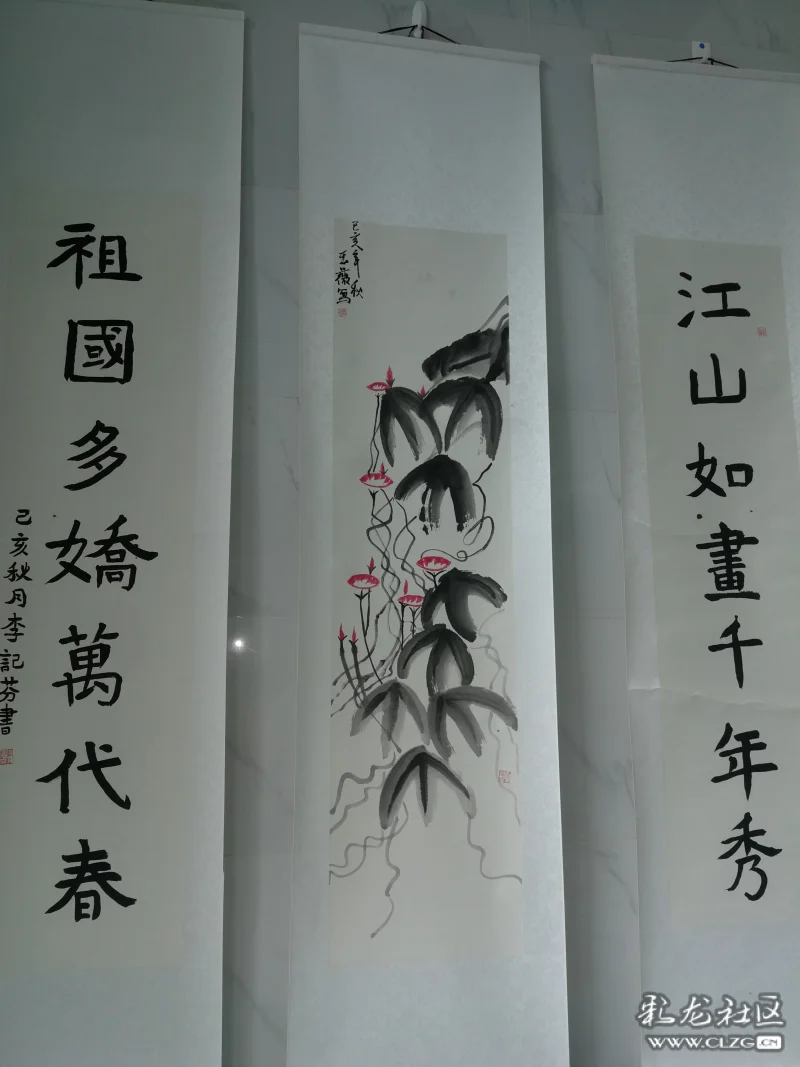 江山如畫千年秀
祖國多嬌萬代春
己亥秋月李記芬書
己亥年秋
彩龙社区
WWW.CLZG.CN